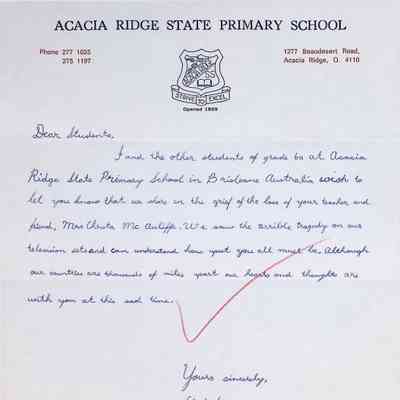 ACACIA RIDGE STATE PRIMARY SCHOOL
Phone 277 1025
275 1197
1277 Beaudesert Road,
Acacia Ridge, Q. 4110
STRIVE TO EXCEL
Opened 1869
Dear Students,
I and the other students of grade 6a at Acacia
Ridge State Primary School in Brisbane Australia wish to
let you know that we share in the grief of the loss of your teacher and
friend, Mrs Christa Mc Auliffe. We saw the terrible tragedy on our
television sets and can understand how upset you all must be. Although
our countries are thousands of miles apart our hearts and thoughts are
with you at this sad time.
Yours sincerely,